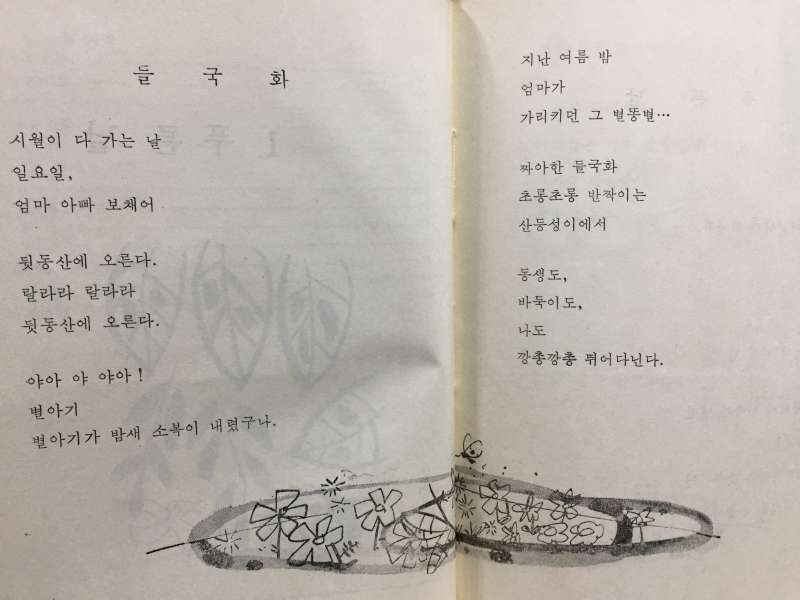 들 국 화
시월이 다 가는 날
일요일,
엄마 아빠 보채어
뒷동산에 오른다.
랄라라 랄라라
뒷동산에 오른다.
야아 야 야아!
별아기
별아기가 밤새 소복이 내렸구나.
지난 여름 밤
엄마가
가리키던 그 별똥별…
짜아한 들국화
초롱초롱 반짝이는
산등성이에서
동생도,
바둑이도,
나도
깡총깡총 뛰어다닌다.